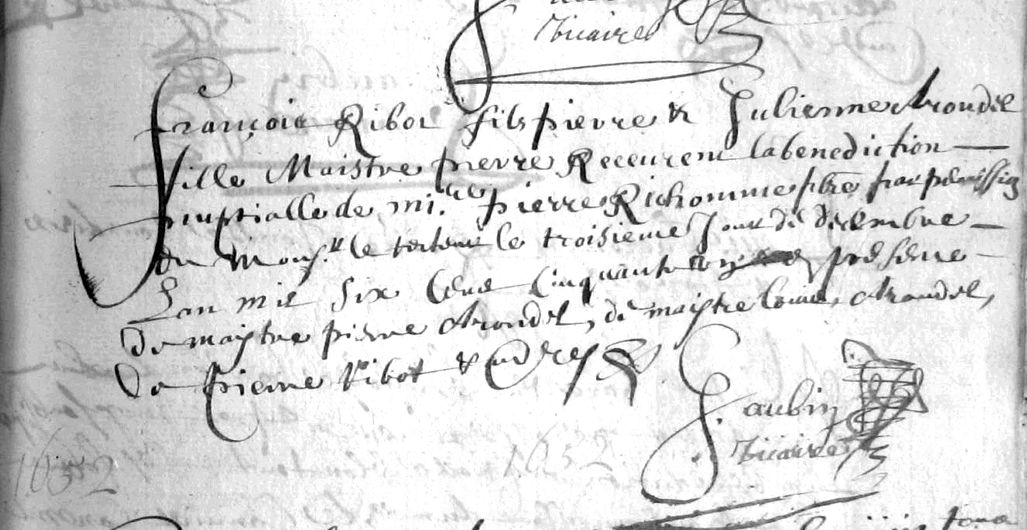 vicaire
François Ribot fils pierre & Julienne Arondel
fille Maistre pierre Receurent la benediction
nuptialle de mi.re pierre Richomme pbre par permission
de Mons.r le recteur le troisieme Jour de decembre
Lan mil six Cens Cinquante presence
de maistre pierre Arondel, de maistre Louis Arondel,
de pierre Ribot &
J. aubin
vicaire
1652
1652